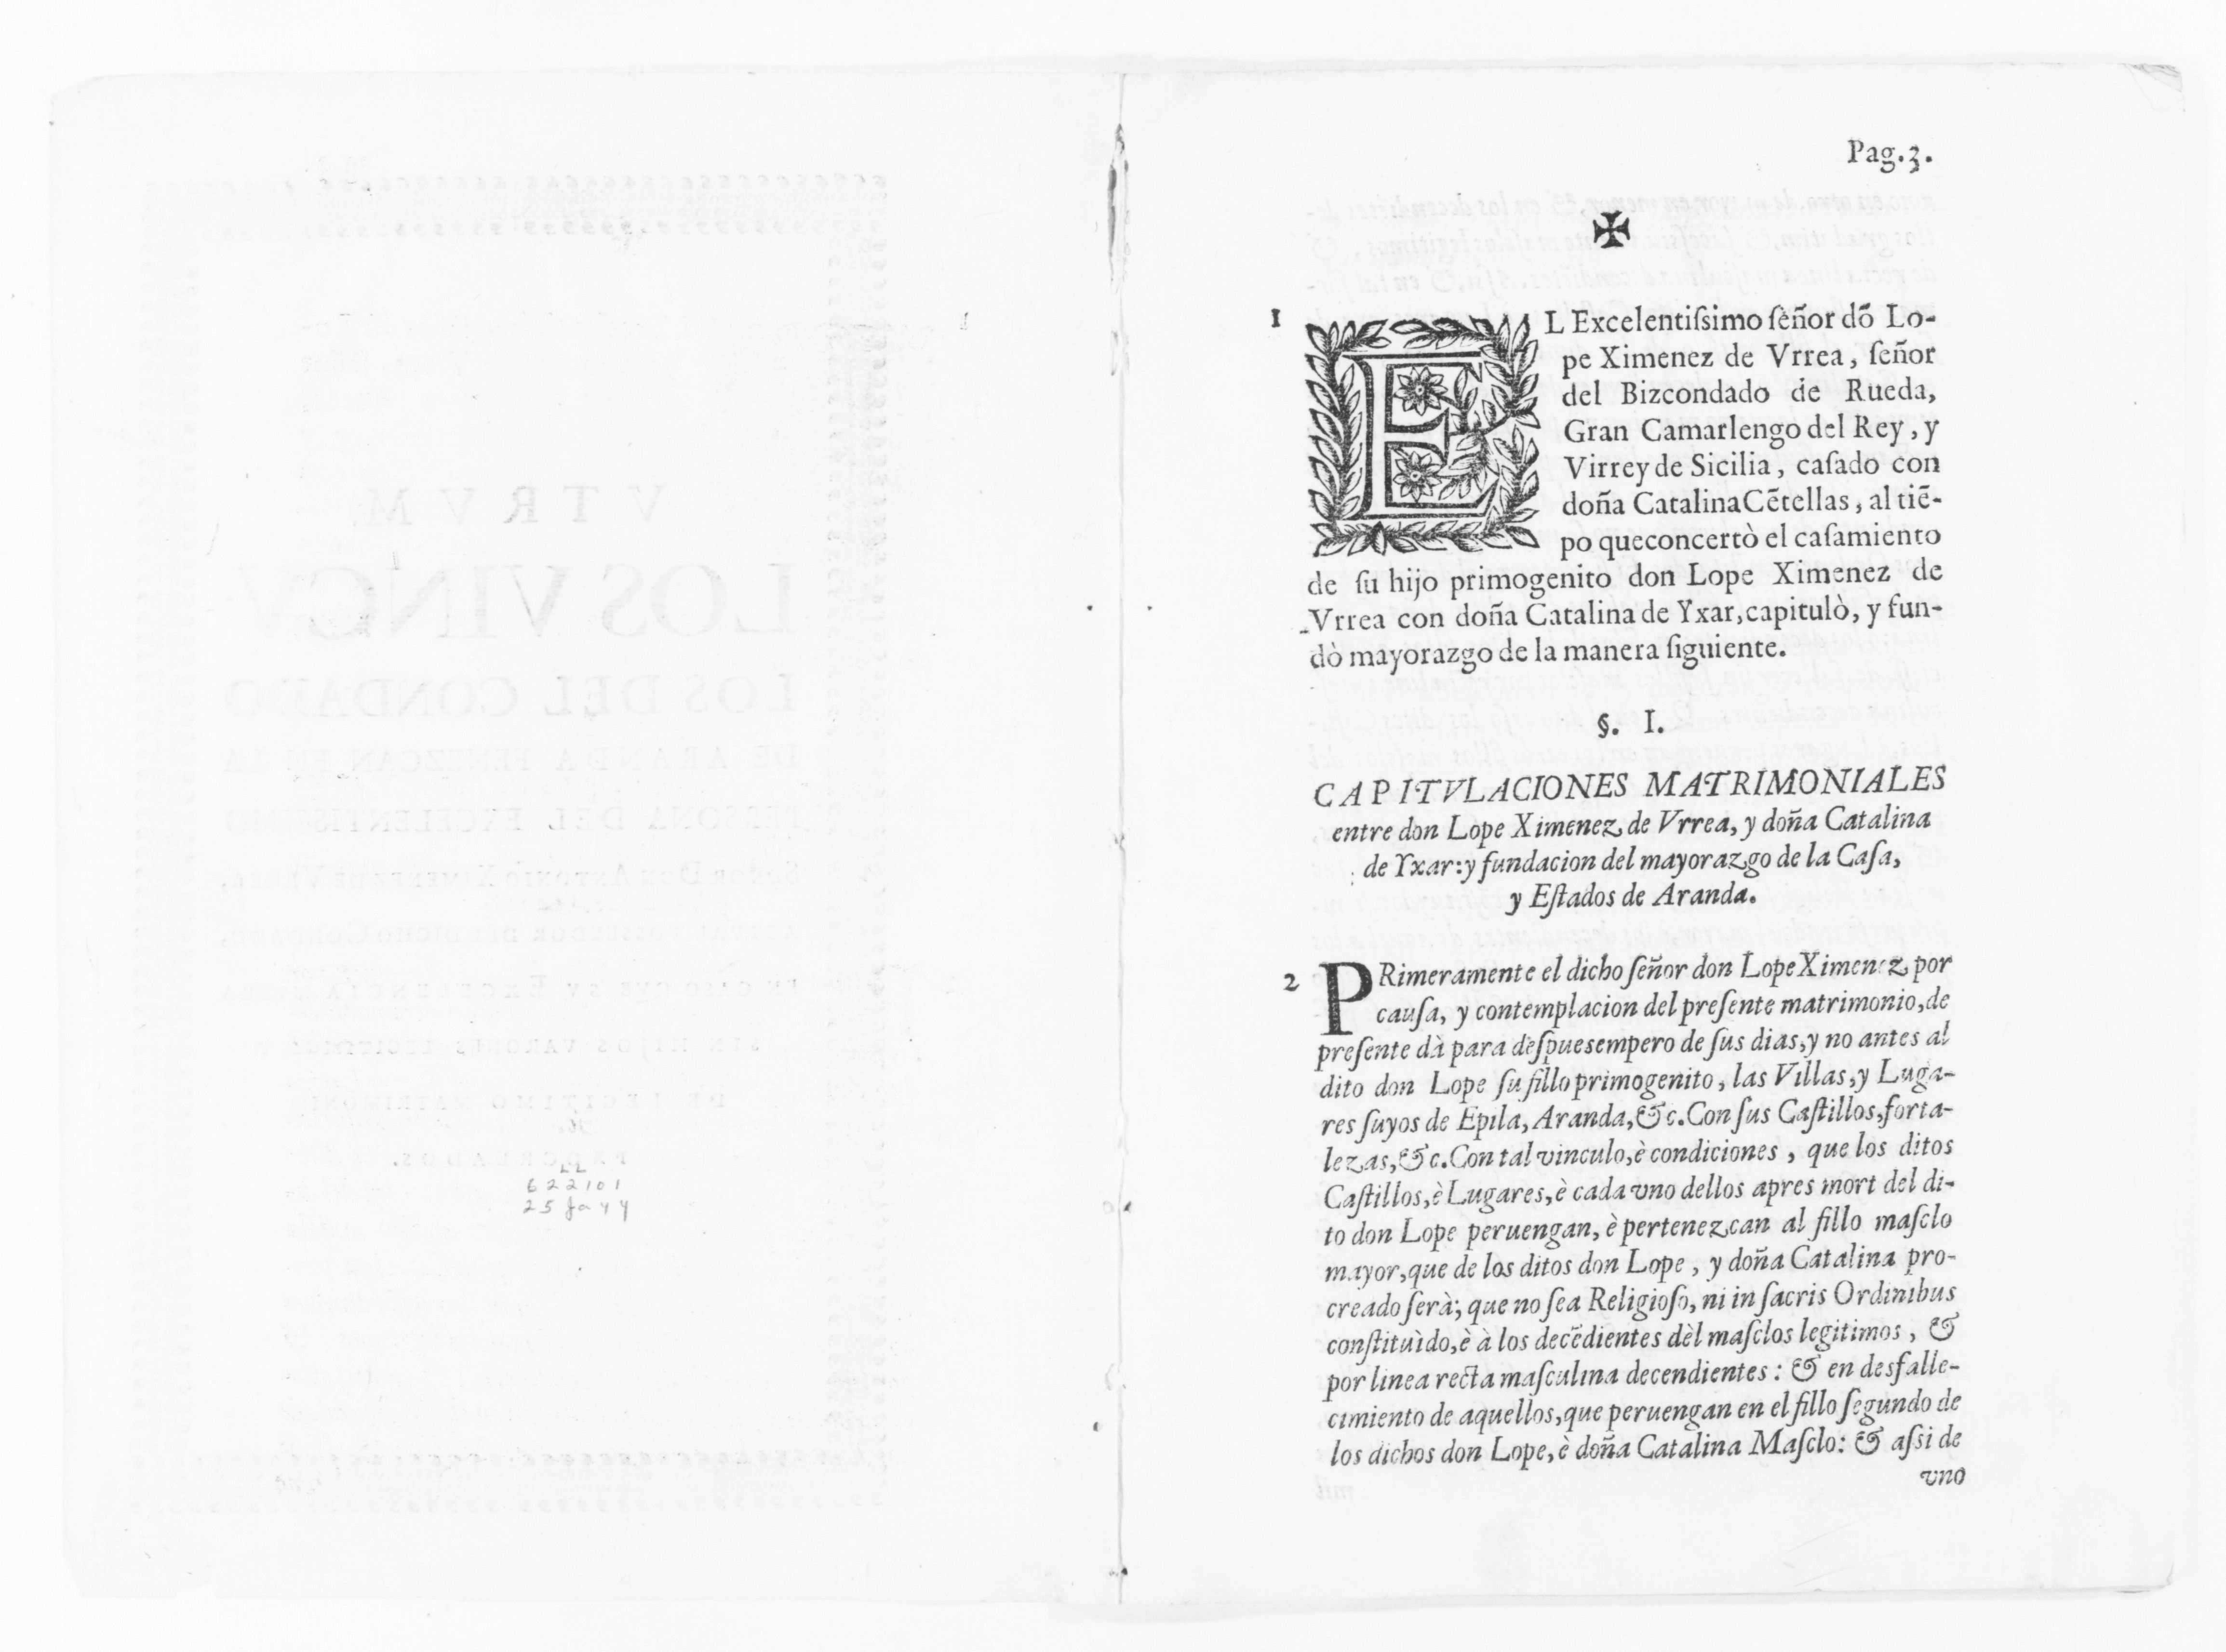 LL
622101
25 Ja 44
Pag.3.
✠
1 EL Excelentiſsimo ſeñor dõ Lo-
pe Ximenez de Vrrea, ſeñor
del Bizcondado de Rueda,
Gran Camarlengo del Rey, y
Virrey de Sicilia, caſado con
doña Catalina Cẽtellas, al tiẽ-
po queconcertò el caſamiento
de ſu hijo primogenito don Lope Ximenez de
Vrrea con doña Catalina de Yxar, capitulò, y fun-
dò mayorazgo de la manera ſiguiente.
§. I.
CAPITVLACIONES MATRIMONIALES
entre don Lope Ximenez de Vrrea, y doña Catalina
de Yxar: y fundacion del mayorazgo de la Caſa,
y Eſtados de Aranda.
2 PRimeramente el dicho ſeñor don Lope Ximenez por
cauſa, y contemplacion del preſente matrimonio, de
preſente dà para deſpuesempero de ſus dias, y no antes al
dito don Lope ſu fillo primogenito, las Villas, y Luga-
res ſuyos de Epila, Aranda, &c. Con ſus Caſtillos, forta-
lezas, &c. Con tal vinculo, è condiciones, que los ditos
Caſtillos, è Lugares, è cada vno dellos apres mort del di-
to don Lope peruengan, è pertenezcan al fillo maſclo
mayor, que de los ditos don Lope, y doña Catalina pro-
creado ſerà; que no ſea Religioſo, ni in ſacris Ordinibus
conſtituìdo, è à los decẽdientes dèl maſclos legitimos, &
por linea recta maſculina decendientes: & en desfalle-
cimiento de aquellos, que peruengan en el fillo ſegundo de
los dichos don Lope, è doña Catalina Maſclo: & aſsi de
vno